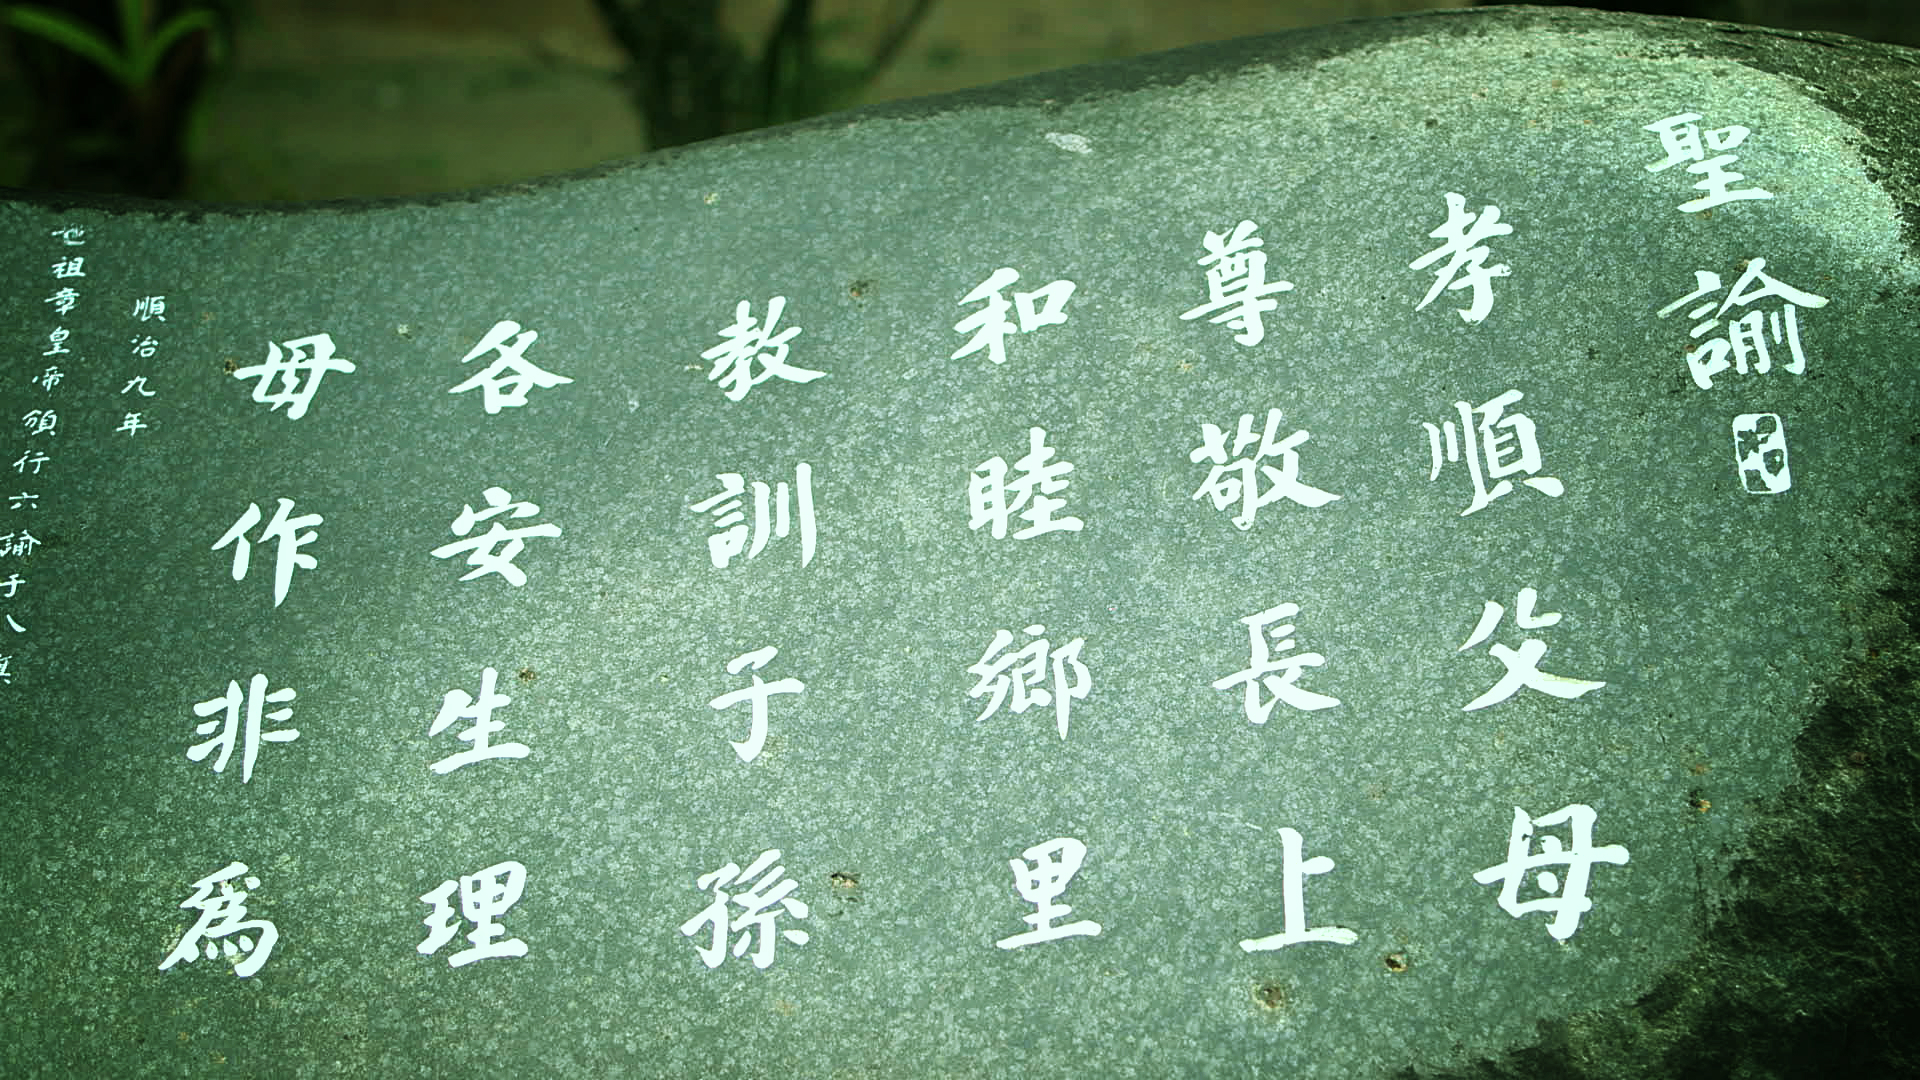 聖諭
孝順父母
尊敬長上
和睦鄉里
教訓子孫
各安生理
毋作非為
順治九年
世祖章皇帝頒行六諭于八